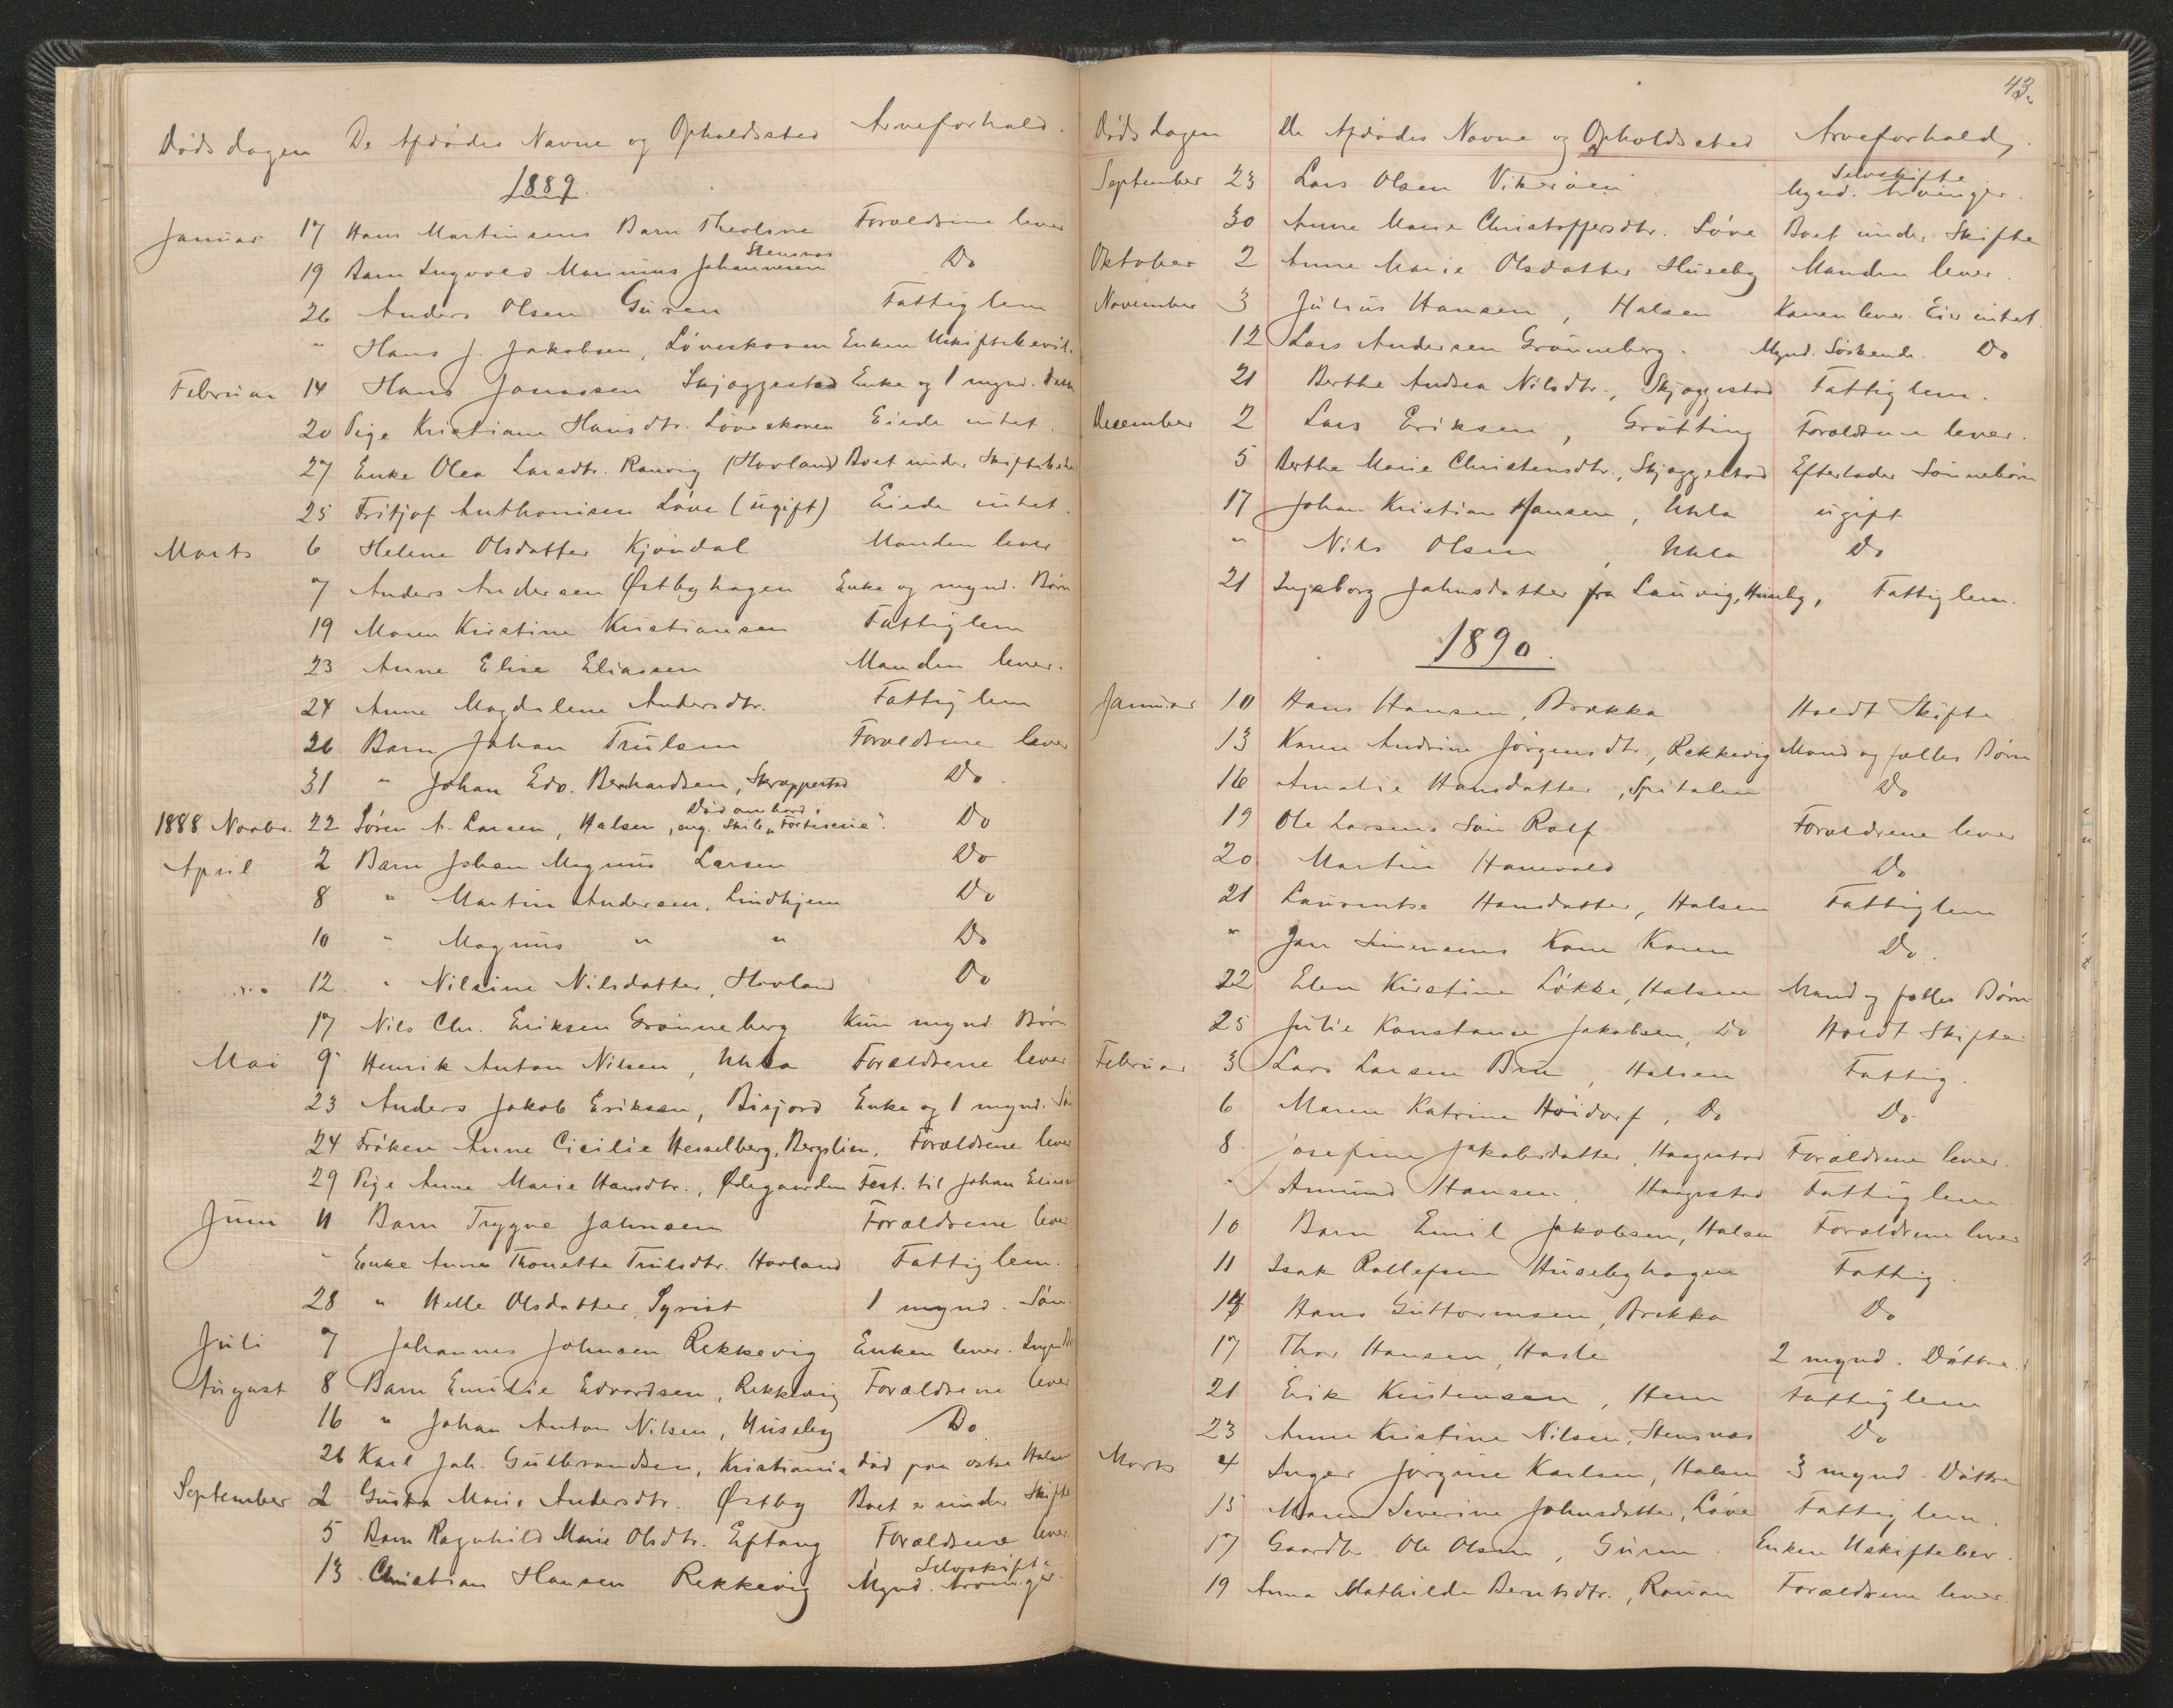 Dødsdagen De Afdødes Navne og Opholdssted Arveforhold.
1889.
Januar 17 Hans Martinsens Barn Theoline Forældrene lever
19 Barn Ingvald Marinius Johannesen Stensnæs Do
26 Anders Olsen Guren Fattiglem
" Hans J. Jakobsen, Løveskoven Enken Uskiftebevil.
Februar 14 Hans Jonassen Skjæggestad Enke og 1 mynd.
20 Pige Kristiane Hansdtr. Løveskoven Eiede intet.
27 Enke Olea Larsdtr. Rauvig (Hovland) Boet under
25 Fritjof Anthonisen Løve (ugift) Eiede intet.
Marts 6 Helene Olsdatter Kjøndal Manden lever
7 Anders Andersen Østbyhagen Enke og mynd. Børn
19 Maren Kirstine Kristiansen Fattiglem
23 Anne Elise Eliassen Manden lever.
24 Anne Magdalene Andersdtr. Fattiglem
26 Barn Johan Trulsen Forældrene lever
31 " Johan Edv. Bernhardsen, Skræppestad Do.
1888 Novbr. 22 Søren A. Larsen, Halsen, Død ombord i eng. Skib Do
April 2 Barn Johan Magnus Larsen Do
8 " Martin Andersen, Lindhjem Do
10 " Magnus " " Do
12 " Nilsine Nilsdatter, Hovland Do
17 Nils Chr. Eriksen Grønneberg Kun mynd. Børn
Mai 9 Henrik Anton Nilsen, Uhla Forældrene lever.
23 Anders Jakob Eriksen, Bisjord Enke og 1 mynd.
24 Frøken Anne Cicilie Hesselberg, Bergslien, Forældrene lever
29 Pige Anne Marie Hansdtr., Ødegaarden Test. til Johan
Juni 11 Barn Trygve Johnsen Forældrene lever
" Enke Anne Thonette Trulsdtr. Hovland Fattiglem.
28 " Helle Olsdatter, Syrist 1 mynd. Søn.
Juli 7 Johannes Johnsen Rekkevig Enken lever.
August 8 Barn Emilie Edvardsen, Rekkevig Forældrene lever
16 " Johan Anton Nilsen, Huseby Do
26 Karl Joh. Gulbrandsen, Kristiania død paa østre Halsen
September 2 Gusta Marie Andersdtr. Østby Boet er under Skifte
5 Barn Ragnhild Marie Olsdtr. Eftang Forældrene lever.
13 Christian Hansen Rekkevig Mynd. Arvinger. Selvskifte
43.
Dødsdagen De Afdødes Navne og Opholdssted Arveforhold.
September 23 Lars Olsen Vikerøen Selvskifte Mynd. Arvinger.
30 Anne Marie Christoffersdtr. Løve Boet under Skifte
Oktober 2 Anne Marie Olsdatter Huseby Manden lever.
November 3 Julius Hansen, Halsen Konen lever. Eier intet.
12 Lars Andersen Grønneberg. Mynd. Søskende. Do
21 Berthe Andrea Nilsdtr., Skjæggestad Fattiglem.
December 2 Lars Eriksen, Grøtting Forældrene lever.
5 Berthe Marie Christensdtr., Skjæggestad Efterlader Sønnebørn
17 Johan Kristian Hansen, Uhla ugift
" Nils Olsen, Uhla Do
21 Ingeborg Johnsdatter fra Laurvig, Huseby, Fattiglem.
1890.
Januar 10 Hans Hansen, Brækka Holdt Skifte.
13 Karen Andrine Jørgensdtr., Rekkevig Mand og fælles Børn
16 Amalie Hansdatter, Spitalen Do
19 Ole Larsens Søn Rolf. Forældrene lever
20 Martin Hanevold Do
21 Laurentse Hansdatter, Halsen Fattiglem
" Jan Simensens Kone Karen Do.
22 Elen Kirstine Løkke, Halsen Mand og fælles Børn
25 Julie Konstance Jakobsen, Do Holdt Skifte.
Februar 3 Lars Larsen Bru, Halsen Fattig.
6 Maren Katrine Høidorf, Do Do.
8 Josefine Jakobsdatter, Haagestad Forældrene lever.
" Amund Hansen, Haagestad Fattiglem
10 Barn Emil Jakobsen, Halsen Forældrene lever
11 Isak Rollefsen Husebyhagen Fattig.
14 Hans Guttormsen, Brækka Do
17 Thor Hansen, Hasle 2 mynd. Døttre.
21 Erik Kristensen, Hem Fattiglem
23 Anne Kristine Nilsen, Stensnæs Do
Marts 4 Inger Jørgine Karlsen, Halsen 3 mynd. Døttre
15 Maren Severine Johnsdatter, Løve Fattiglem.
17 Gaardbr. Ole Olsen, Guren Enken Uskiftebev.
19 Anna Mathilde Berntsdtr., Rauan Forældrene lever.